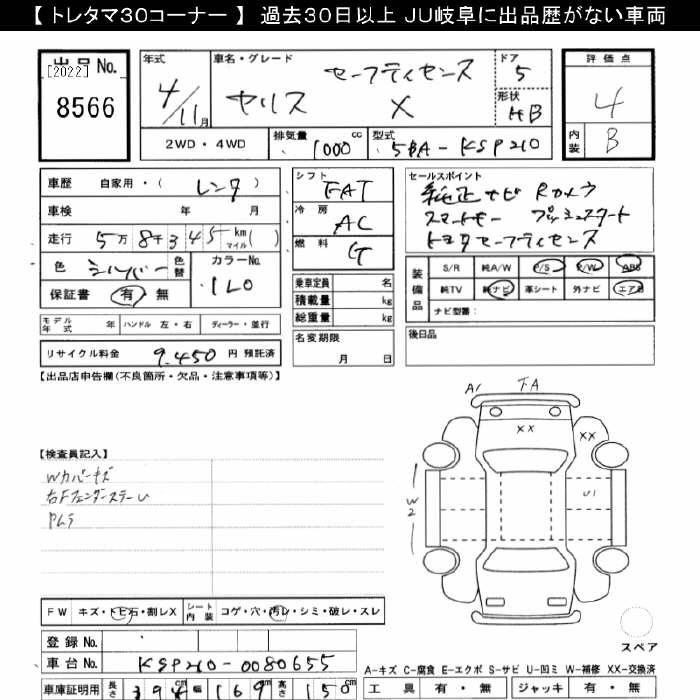 【 トレタマ30コーナー 】 過去30日以上 JU岐阜に出品歴がない車両
出品No.
[2022]
8566
年式
4/11月
車名・グレード
セーフティセンス
ヤリス X
ドア
5
形状
HB
評価点
4
内装
B
2WD・4WD
排気量 1000 cc
型式 5BA-KSP210
車歴 自家用・( レンタ )
車検 年 月
走行 5万8千345 km マイル( )
色 シルバー 色替
カラーNo. 1L0
保証書 有 無
シフト
FAT
冷房
AC
燃料
G
乗車定員 名
積載量 kg
総重量 kg
セールスポイント
純正ナビ Rカメラ
スマートキー プッシュスタート
トヨタセーフティセンス
装備品
S/R 純A/W P/S P/W ABS
純TV 純ナビ 革シート 外ナビ エアB
ナビ型番:
モデル年式 年 ハンドル 左・右 ディーラー・並行
リサイクル料金 9,450 円 預託済
名変期限
月 日
後日品
【出品店申告欄(不良箇所・欠品・注意事項等)】
【検査員記入】
Wカバーキズ
右Fフェンダーステーし
A1 FA
XX XX
W2 U1
FW キズ・トビ石・割レX シート内装 コゲ・穴・汚レ・シミ・破レ・スレ
登録No.
車台No. KSP210-0080655
車庫証明用 長さ 394 cm 幅 169 cm 高さ 150 cm
スペア
A-キズ C-腐食 E-エクボ S-サビ U-凹ミ W-補修 XX-交換済
工具 有・無 ジャッキ 有・無